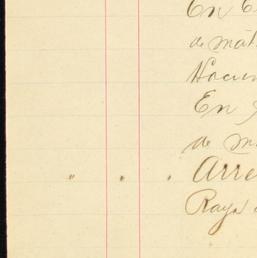 En
de mat
Hacien
En
de m
" " " Arre
Raya